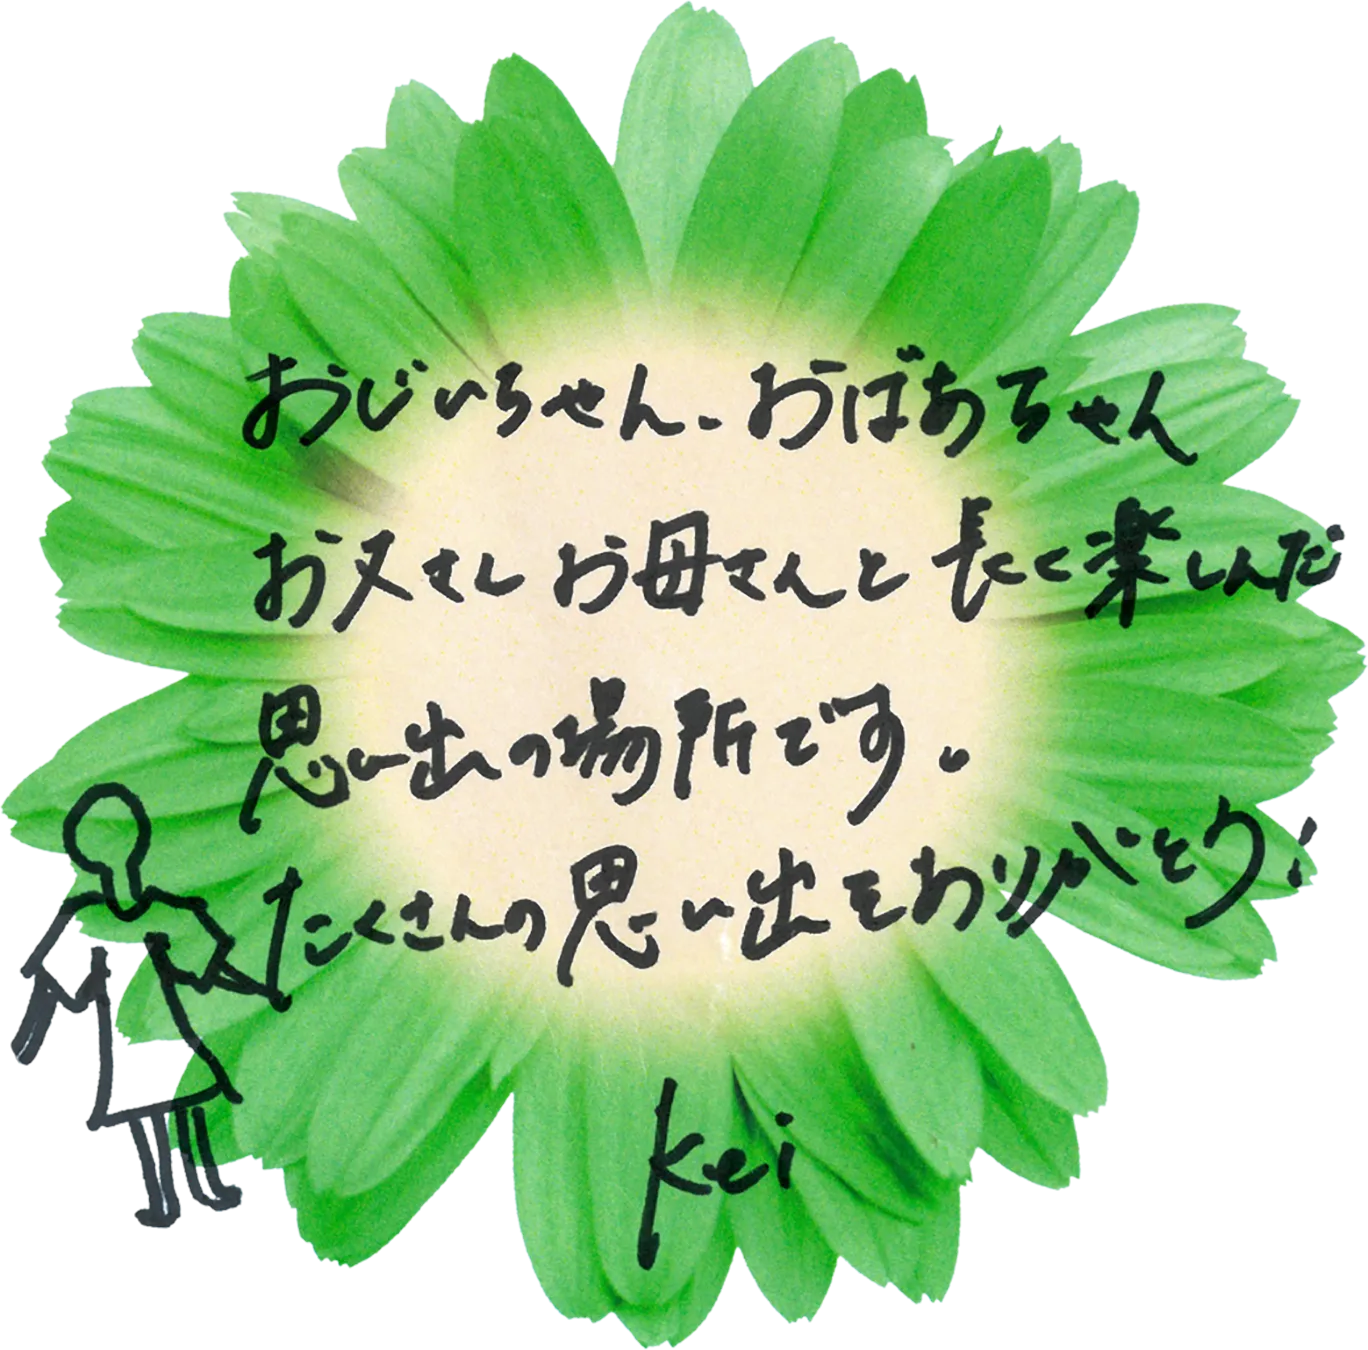 おじいちゃん、おばあちゃん
お父さん お母さんと長く楽しんだ
思い出の場所です。
たくさんの思い出をありがとう!
Kei